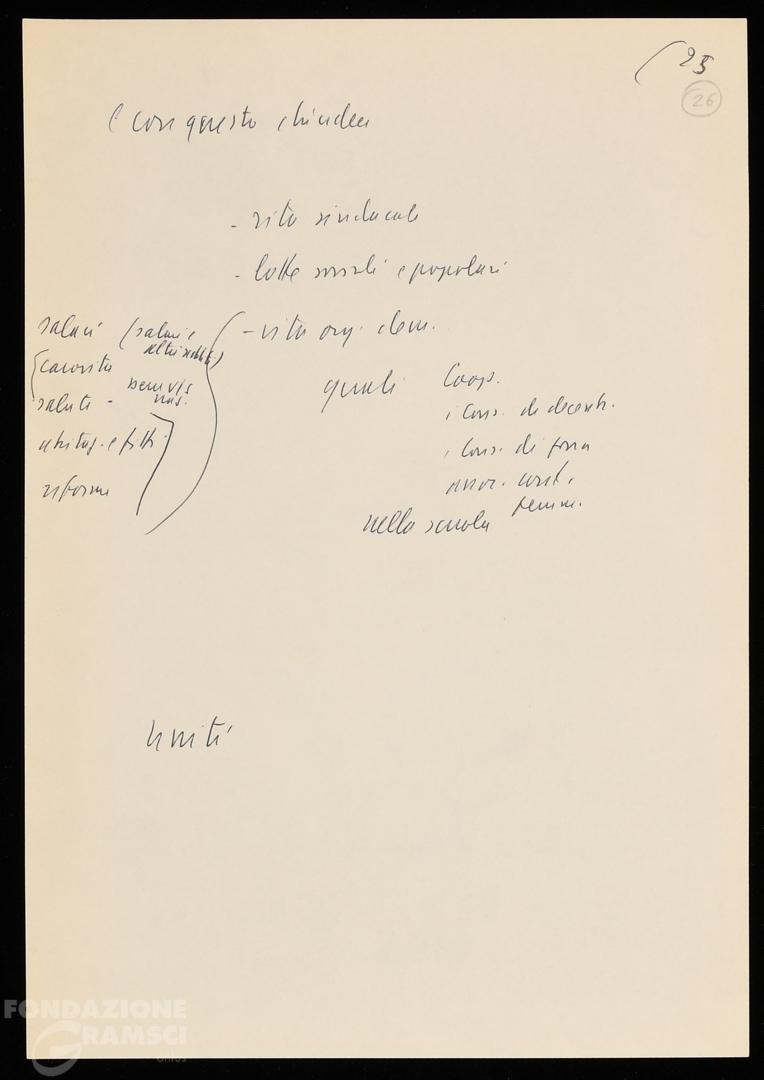 25
26
e con questo chiudere
- vita sindacale
- lotte sociali e popolari
salari (salari e
altri redditi)
- vita org. dem.
carovita
quali Coop.
salute -
i Cons. di decentr.
abitaz. e fitti
i Cons. di
riforme
assoc.
femm.
nella scuola
Unità
FONDAZIONE
GRAMSCI
onlus